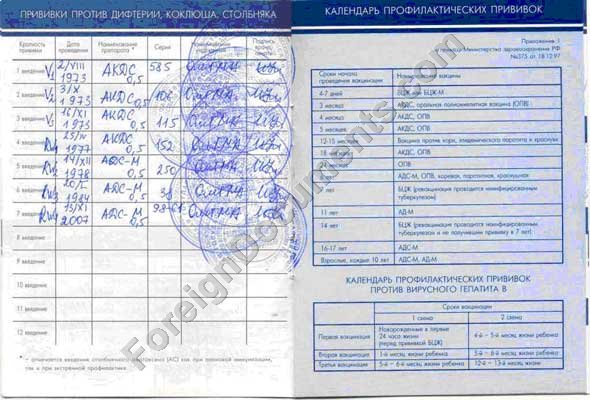 ПРИВИВКИ ПРОТИВ ДИФТЕРИИ, КОКЛЮША, СТОЛБНЯКА
Кратность прививки Дата проведения Наименование препарата * Серия Подпись врача
1 введение V1 2/VIII 1973 АКДС 0,5 585
2 введение V2 3/X 1973 АКДС 0,5
3 введение V3 16/XI 1973 АКДС 0,5 115
4 введение 1977 АКДС 0,5 152
5 введение 14/XII 1978 АДС-М 0,5 250
6 введение 1984 АДС-М 0,5
7 введение 2007 АДС-М 0,5
8 введение
9 введение
10 введение
11 введение
12 введение
* - отмечается введение столбнячного анатоксина (АС) как при плановой иммунизации,
так и при экстренной профилактике.
КАЛЕНДАРЬ ПРОФИЛАКТИЧЕСКИХ ПРИВИВОК
Приложение 1
к приказу Министерства здравоохранения РФ
№375 от 18.12.97
Сроки начала проведения вакцинации Наименование вакцины
4-7 дней БЦЖ или БЦЖ-М
3 месяца АКДС, оральная полиомиелитная вакцина (ОПВ)
4 месяца АКДС, ОПВ
5 месяцев АКДС, ОПВ
12-15 месяцев Вакцина против кори, эпидемического паротита и краснухи
18 месяцев АКДС, ОПВ
ОПВ
АДС-М, ОПВ, коревая, паротитная, краснушная
7 лет БЦЖ (ревакцинация проводится неинфицированным туберкулезом)
11 лет АД-М
14 лет БЦЖ (ревакцинация проводится неинфицированным туберкулезом и не получившим прививку в 7 лет)
16-17 лет АДС-М
Взрослые, каждые 10 лет АДС-М, АД-М
КАЛЕНДАРЬ ПРОФИЛАКТИЧЕСКИХ ПРИВИВОК
ПРОТИВ ВИРУСНОГО ГЕПАТИТА В
Сроки вакцинации
1 схема 2 схема
Первая вакцинация Новорожденные в первые 24 часа жизни (перед прививкой БЦЖ) 4-й - 5-й месяц жизни ребенка
Вторая вакцинация 1-й месяц жизни ребенка 5-й - 6-й месяц жизни ребенка
Третья вакцинация 5-й - 6-й месяц жизни ребенка 12-й - 13-й месяц жизни
ForeignDocuments.com